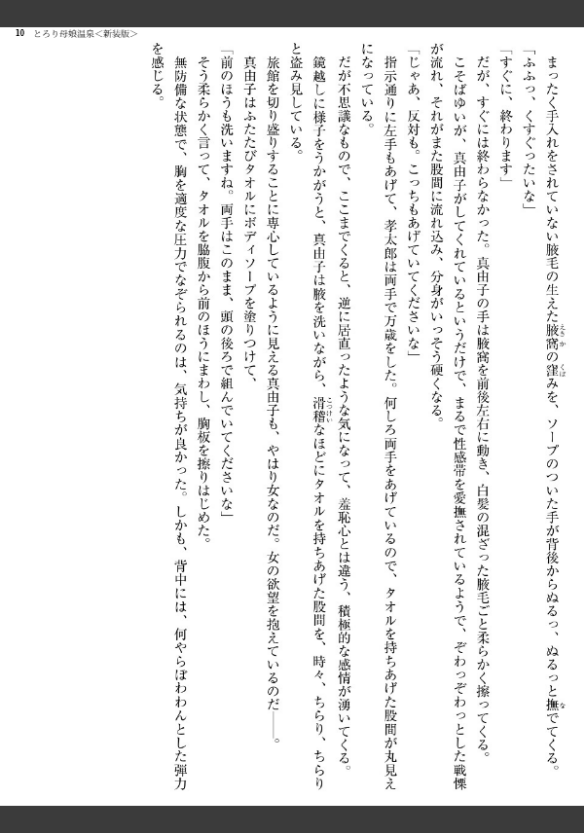 10 とろり母娘温泉<新装版>
まったく手入れをされていない腋毛の生えた腋窩の窪みを、ソープのついた手が背後からぬるっ、ぬるっと撫でてくる。
「ふふっ、くすぐったいな」
「すぐに、終わります」
だが、すぐには終わらなかった。真由子の手は腋窩を前後左右に動き、白髪の混ざった腋毛ごと柔らかく擦ってくる。
こそばゆいが、真由子がしてくれているというだけで、まるで性感帯を愛撫されているようで、ぞわっぞわっとした戦慄
が流れ、それがまた股間に流れ込み、分身がいっそう硬くなる。
「じゃあ、反対も。こっちもあげていてくださいな」
指示通りに左手もあげて、孝太郎は両手で万歳をした。何しろ両手をあげているので、タオルを持ちあげた股間が丸見え
になっている。
だが不思議なもので、ここまでくると、逆に居直ったような気になって、羞恥心とは違う、積極的な感情が湧いてくる。
鏡越しに様子をうかがうと、真由子は腋を洗いながら、滑稽なほどにタオルを持ちあげた股間を、時々、ちらり、ちらり
と盗み見している。
旅館を切り盛りすることに専心しているように見える真由子も、やはり女なのだ。女の欲望を抱えているのだ――。
真由子はふたたびタオルにボディソープを塗りつけて、
「前のほうも洗いますね。両手はこのまま、頭の後ろで組んでいてくださいな」
そう柔らかく言って、タオルを脇腹から前のほうにまわし、胸板を擦りはじめた。
無防備な状態で、胸を適度な圧力でなぞられるのは、気持ちが良かった。しかも、背中には、何やらぼわわんとした弾力
を感じる。